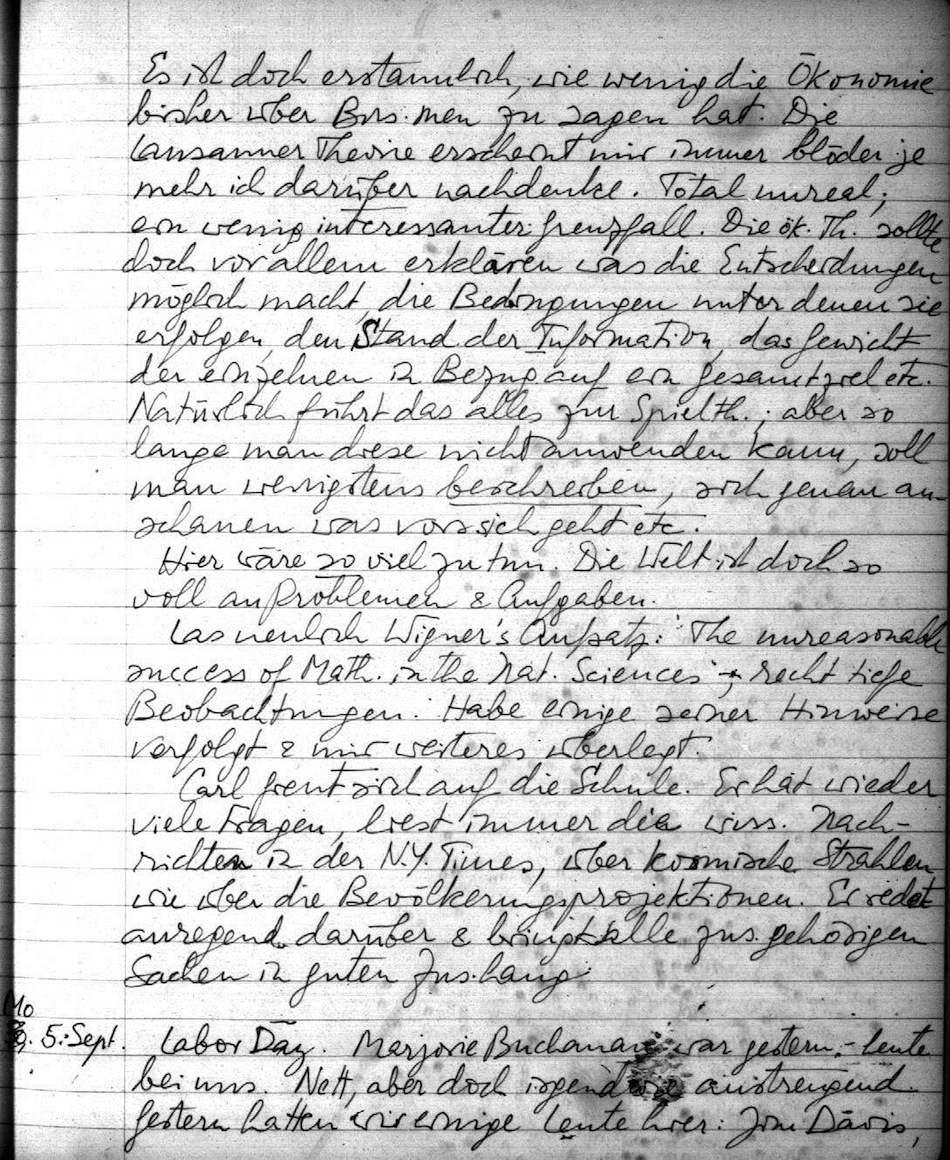 Es ist doch erstaunlich, wie wenig die Ökonomie
bisher über Bus.men zu sagen hat. Die
Lausanner Theorie erscheint mir immer blöder je
mehr ich darüber nachdenke. Total unreal;
ein wenig interessanter Grenzfall. Die ök. Th. sollte
doch vor allem erklären was die Entscheidungen
möglich macht, die Bedingungen unter denen sie
erfolgen, den Stand der Information, das Gewicht
der einzelnen in Bezug auf ein Gesamtziel etc.
Natürlich führt das alles zur Spielth.; aber so
lange man diese nicht anwenden kann, soll
man wenigstens beschreiben, sich genau an-
schauen was vor sich geht etc.
Hier wäre so viel zu tun. Die Welt ist doch so
voll an Problemen & Aufgaben.
Las neulich Wigner's Aufsatz: "The unreasonable
success of Math. in the Nat. Sciences"; recht tiefe
Beobachtungen. Habe einige seiner Hinweise
verfolgt & mir weiteres überlegt.
Carl freut sich auf die Schule. Er hat wieder
viele Fragen, liest immer die wiss. Nach-
richten in der N.Y. Times, über kosmische Strahlen
wie über die Bevölkerungsprojektionen. Er redet
anregend darüber & bringt alle zus.gehörigen
Sachen in guten Zus.hang.
Mo
5. Sept. Labor Day. Marjorie Buchanan war gestern - heute
bei uns. Nett, aber doch irgendwie anstrengend.
Gestern hatten wir einige Leute hier: Jim Davis,